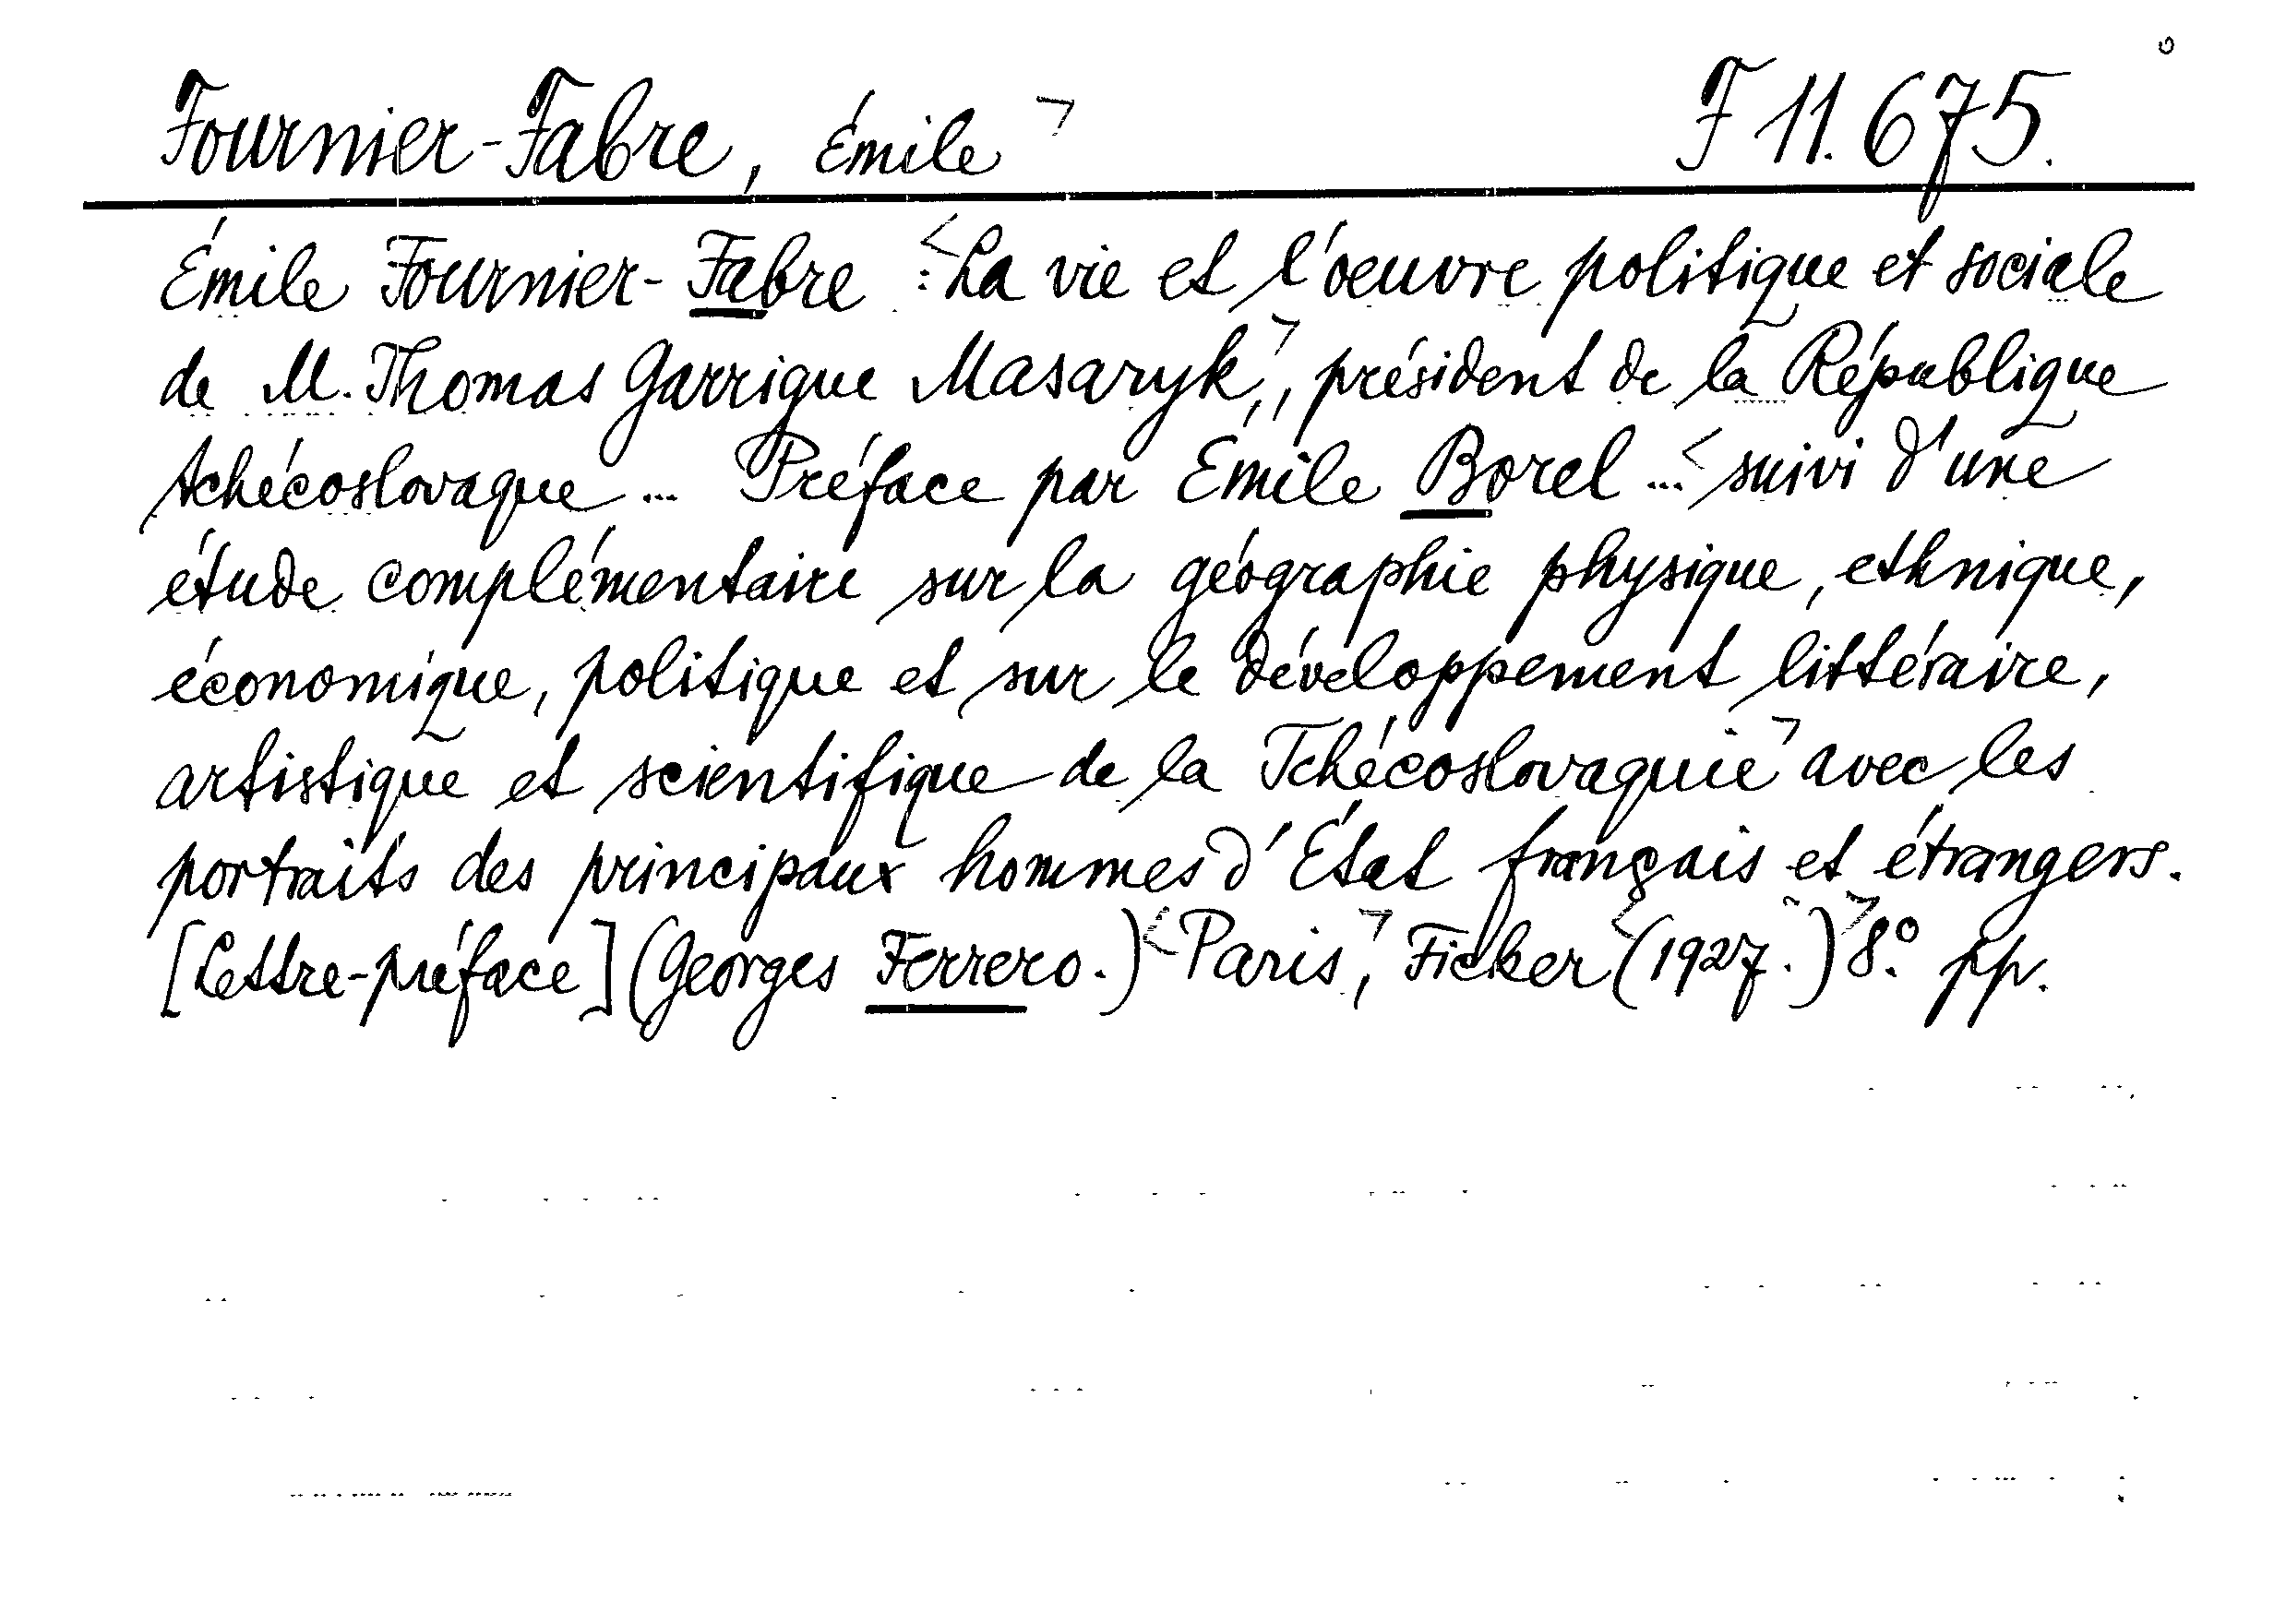 Fournier-Fabre, Émile F 11.675.
Émile Fournier-Fabre : La vie et l'oeuvre politique et sociale
de M. Thomas Garrigue Masaryk, président de la République
tchécoslovaque ... Préface par Émile Borel ... suivi d'une
étude complémentaire sur la géographie physique, ethnique,
économique, politique et sur le développement littéraire,
artistique et scientifique de la Tchécoslovaquie avec les
portraits des principaux hommes d'État français et étrangers.
[Lettre-préface] (Georges Ferrero.) Paris, Ficker (1927.) 8.° pp.